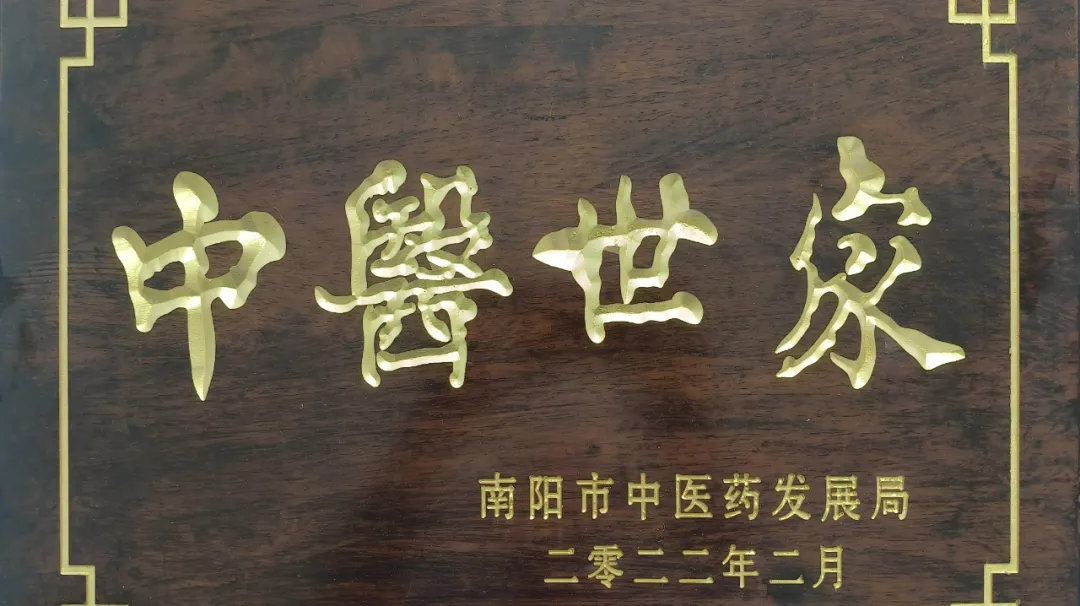 中醫世家
南阳市中医药发展局
二零二二年二月